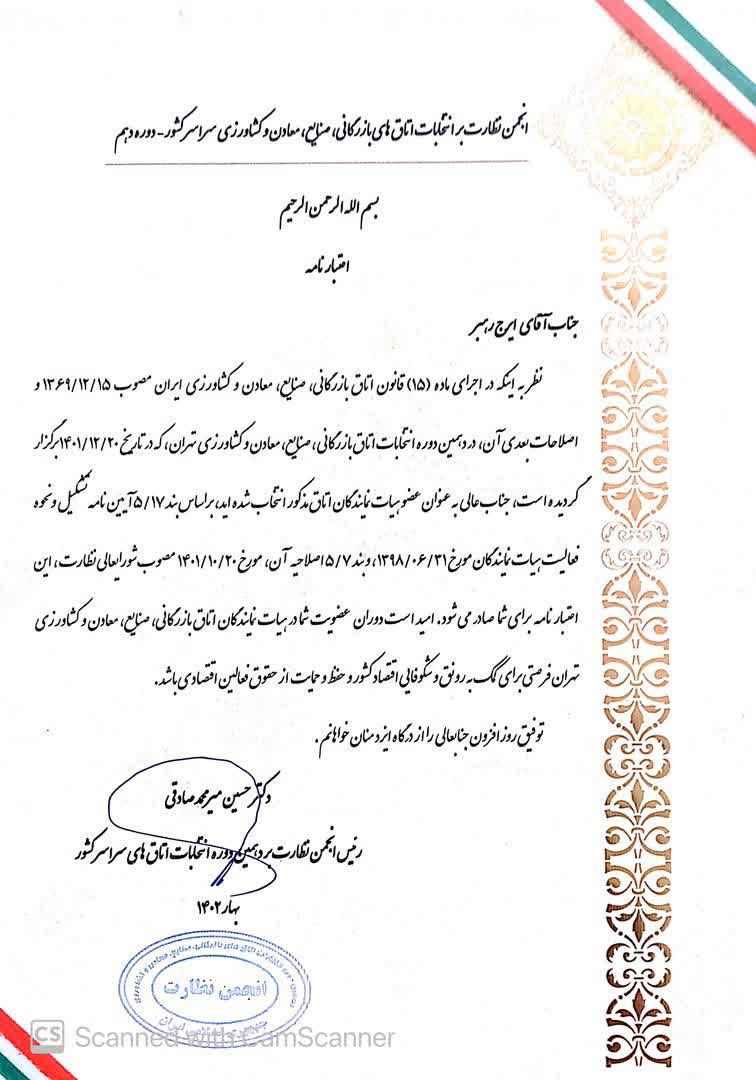 انجمن نظارت بر انتخابات اتاق های بازرگانی، صنایع، معادن و کشاورزی سراسر کشور - دوره دهم
بسم الله الرحمن الرحیم
اعتبار نامه
جناب آقای ایرج رهبر
نظر به اینکه در اجرای ماده (۱۵) قانون اتاق بازرگانی، صنایع، معادن و کشاورزی ایران مصوب ۱۳۶۹/۱۲/۱۵ و
اصلاحات بعدی آن، در دهمین دوره انتخابات اتاق بازرگانی، صنایع، معادن و کشاورزی تهران، که در تاریخ ۱۴۰۱/۱۲/۲۰ برگزار
گردیده است، جناب عالی به عنوان عضو هیات نمایندگان اتاق مذکور انتخاب شده اید، براساس بند ۵/۱۷ آیین نامه تشکیل و نحوه
فعالیت هیات نمایندگان مورخ ۱۳۹۸/۰۶/۳۱، و بند ۵/۷ اصلاحیه آن، مورخ ۱۴۰۱/۱۰/۲۰ مصوب شورایعالی نظارت، این
اعتبار نامه برای شما صادر می شود. امید است دوران عضویت شما در هیات نمایندگان اتاق بازرگانی، صنایع، معادن و کشاورزی
تهران فرصتی برای کمک به رونق و شکوفایی اقتصاد کشور و حفظ و حمایت از حقوق فعالین اقتصادی باشد.
توفیق روز افزون جنابعالی را از درگاه ایزد منان خواهانم.
دکتر حسین میرمحمد صادقی
رئیس انجمن نظارت بر دهمین دوره انتخابات اتاق های سراسر کشور
بهار ۱۴۰۲
انجمن نظارت
CS Scanned with CamScanner